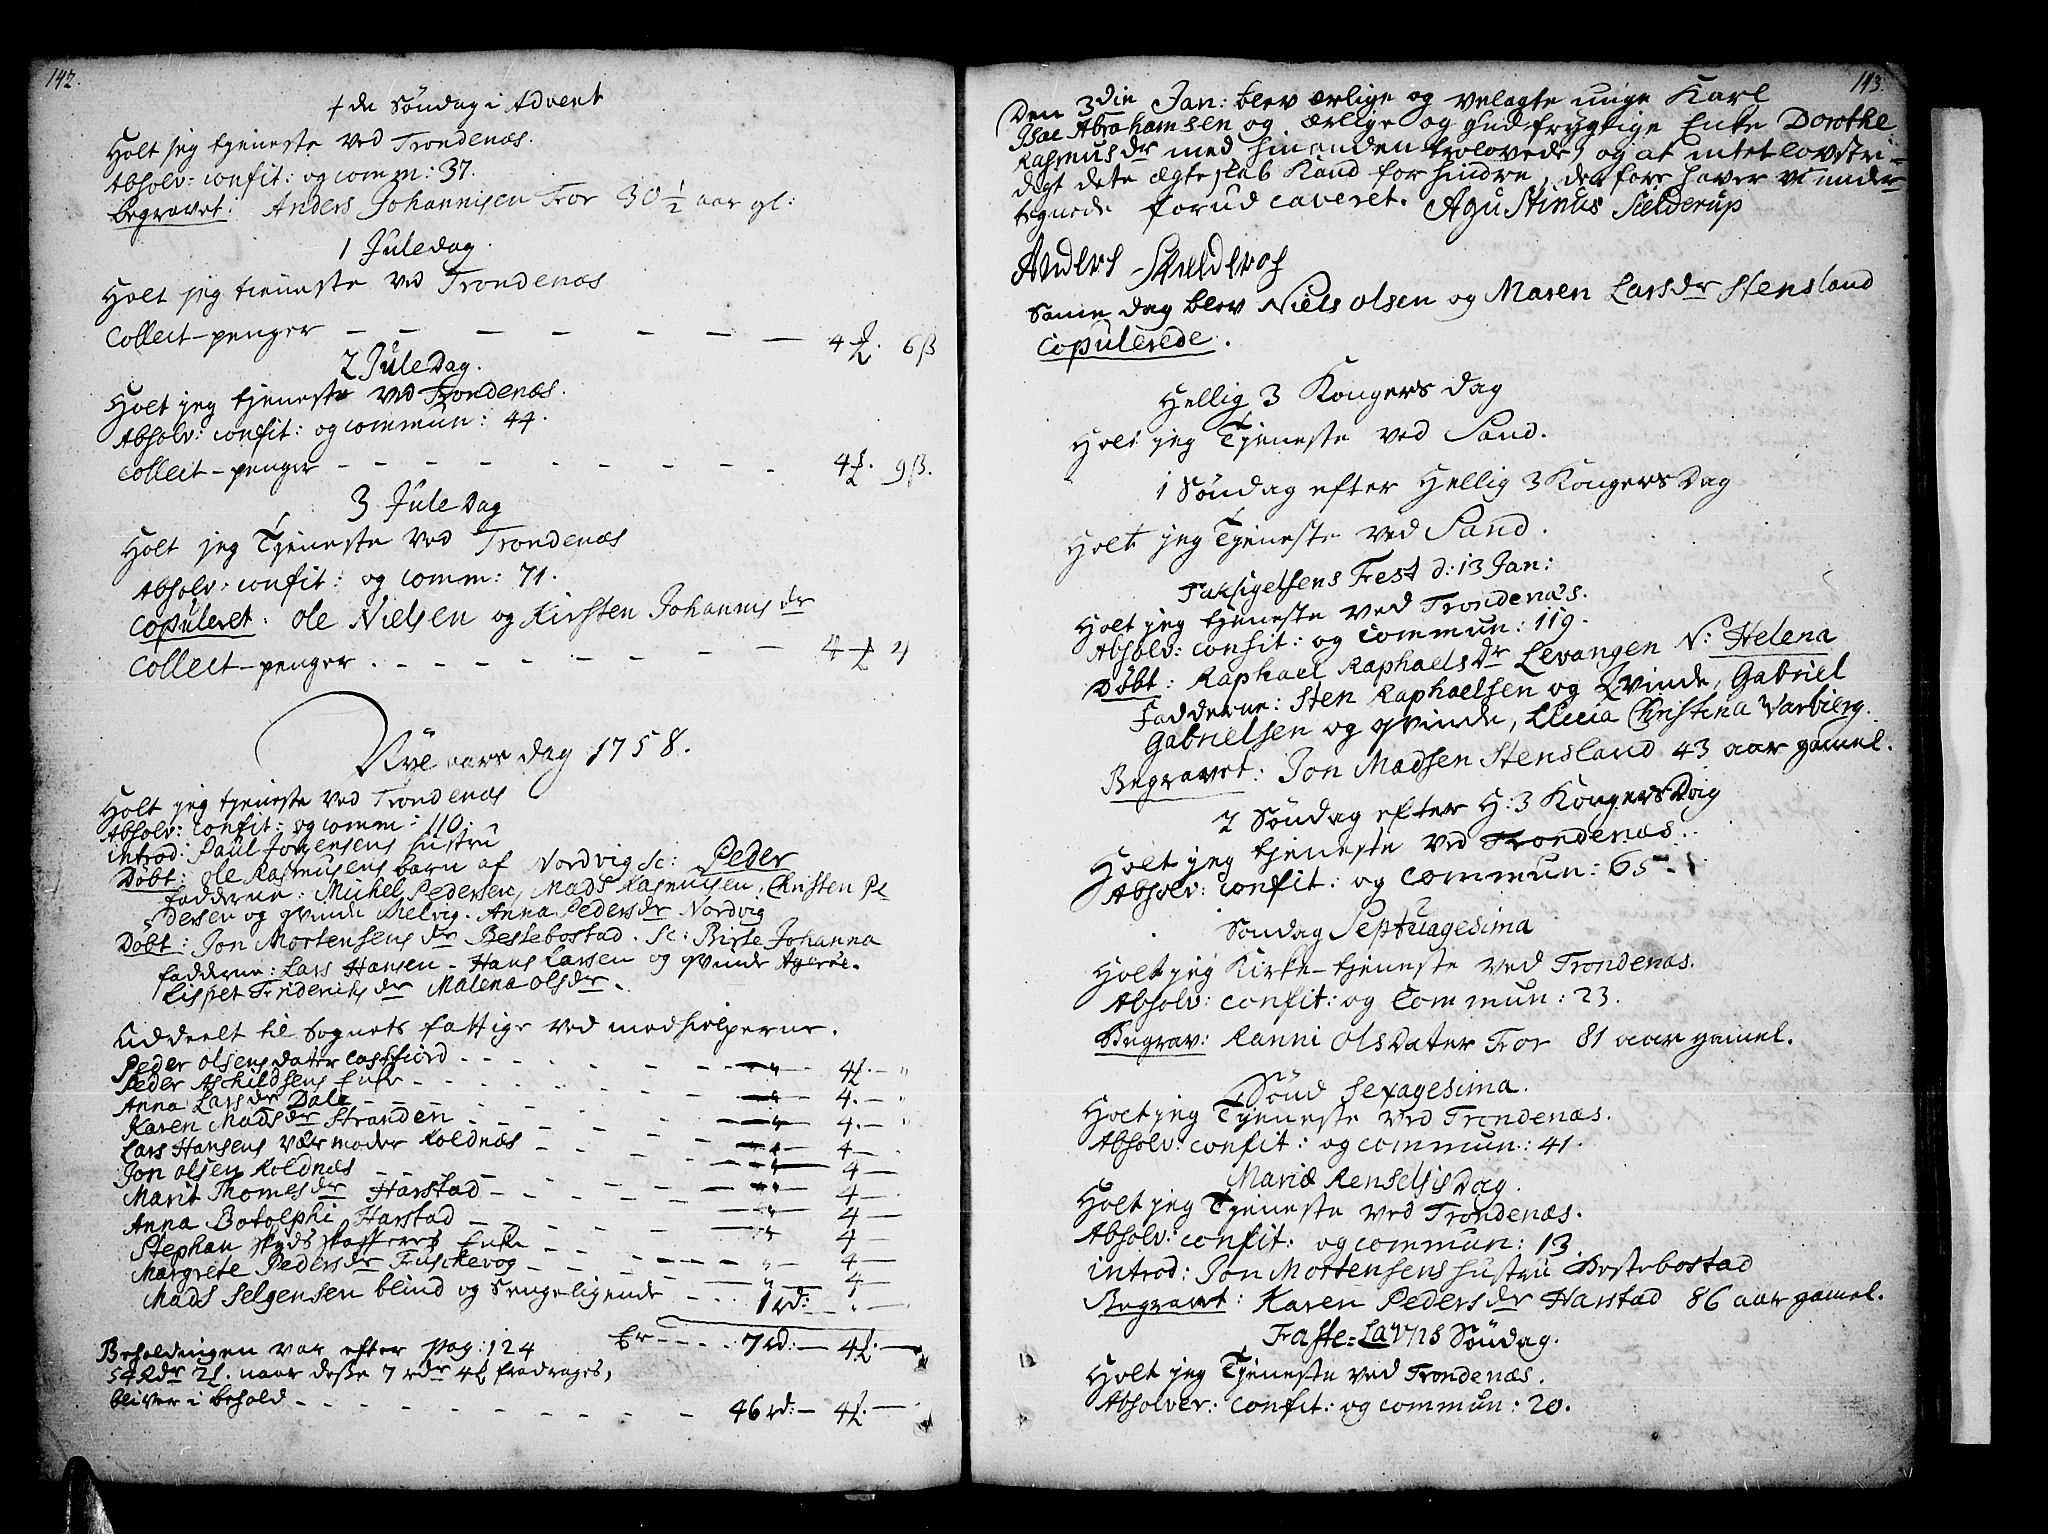 142.
4de Søndag i Advent
Holt jeg tjeneste ved Trondenæs.
Absolv: confit: og comm: 37.
Begravet: Anders Johannisen Tror 30 1/2 aar gl:
1 Juledag.
Holt jeg tieneste ved Trondenæs
Collect-penger 4 6ß
2 JuleDag.
Holt jeg tjeneste ved Trondenæs.
Absolv: confit: og commun: 44.
Collect-penger 4 9ß.
3 JuleDag
Holt jeg Tjeneste ved Trondenæs
Absolv: confit: og comm: 71.
Copuleret. Ole Nielsen og Kirsten Johannisdr
Collect-penger 4
Nye aars dag 1758.
Holt jeg tjeneste ved Trondenæs
Absolv: confit: og comm: 110.
introd: Paul Jørgensens hustru
Døbt: Ole Rasmusens barn af Nordvig Sc: Peder
fadderne: Michel Pedersen, Mads Rasmusen, Christen Pe
dersen og qvinde Kielvig. Anna Pedersdr Nordvig
Døbt: Jon Mortensens dr Bessebostad. Sc: Birte Johanna
fadderne: Lars Hansen - Hans Larsen og qvinde
Lispet Friderichsdr Malena Olsdr.
Uddeelt til Sognets fattige ved medhielperne.
Peder Olsens dater Cassfiord 4
Peder Aschildsens Enke 4.
Anna Larsdr Dale 4.
Karen Madsdr Stranden 4
Lars Hansens værmoder Koldnæs 4
Jon Olsen Koldnæs 4
Marit Thomesdr Harstad 4
Anna Botolphi Harstad 4
Stephan skydsskaffers Enke 4
Margrete Pedersdr Fuskevog 4
Mads Selgensen blind og Sengeligende 1 rd:
Er 7 rd: 4
Beholdningen var efter pag: 124
54 Rdr 2 . naar desse 7 rdr 4 fradrages,
bliver i behold 46 rd: 4
113.
Den 3die Jan: blev ærlige og velagte unge Karl
Isac Abrahamsen og ærlige og gudfrygtige Enke Dorothe
Rasmusdr med hinanden trolovede, og at intet lovstri-
digt dete ægteskab kand forhindre, derfore haver vi under
tegnede forud caveret. Agustinus Sielderup
Anders
Same dag blev Niels Olsen og Maren Larsdr Stensland
Copulerede.
Hellig 3 Kongers dag
Holt jeg Tjeneste ved Sand.
1 Søndag efter Hellig 3 Kongers Dag
Holt jeg Tjeneste ved Sand.
Taksigelsens Fest d: 13 Jan:
Holt jeg tjeneste ved Trondenæs.
Absolv: confit: og commun: 119.
Døbt: Raphael Raphaelsdr Levangen N: Helena
Fadderne: Sten Raphaelsen og Qvinde, Gabriel
Gabrielsen og qvinde, Lucia Christina Warbierg.
Begravet: Jon Madsen Stensland 43 aar gamel.
2 Søndag efter H: 3 Kongers Dag
Holt jeg tjeneste ved Trondenæs.
Absolv: confit: og commun: 65.
Søndag Septuagesima
Holt jeg Kirke-tjeneste ved Trondenæs.
Absolv: confit: og commun: 23.
Begrav: Ranni Olsdater Tror 81 aar gamel.
Sønd Sexagesima.
Holt jeg Tjeneste ved Trondenæs.
Absolv: confit: og commun: 41.
Mariæ Renselsis Dag.
Holt jeg Tjeneste ved Trondenæs.
Absolv: confit: og commun: 13
introd: Jon Mortensens hustru Bestebostad
Begravet: Karen Pedersdr Harstad 86 aar gamel.
Faste-Lavns Søndag.
Holt jeg Tjeneste ved Trondenæs.
Absolver: confit: og commun: 20.